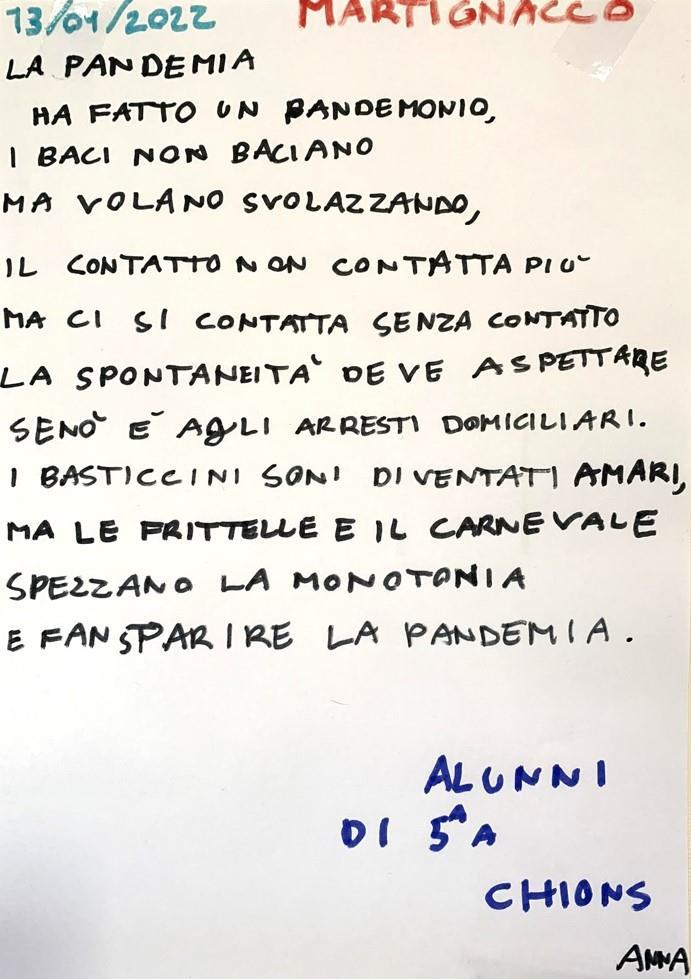 13/01/2022 MARTIGNACCO
LA PANDEMIA
HA FATTO UN PANDEMONIO,
I BACI NON BACIANO
MA VOLANO SVOLAZZANDO,
IL CONTATTO NON CONTATTA PIÙ
MA CI SI CONTATTA SENZA CONTATTO
LA SPONTANEITÀ DEVE ASPETTARE
SENÒ È AGLI ARRESTI DOMICILIARI.
I BASTICCINI SONI DIVENTATI AMARI,
MA LE FRITTELLE E IL CARNEVALE
SPEZZANO LA MONOTONIA
E FAN SPARIRE LA PANDEMIA.
ALUNNI
DI 5ᴬA
CHIONS
ANNA